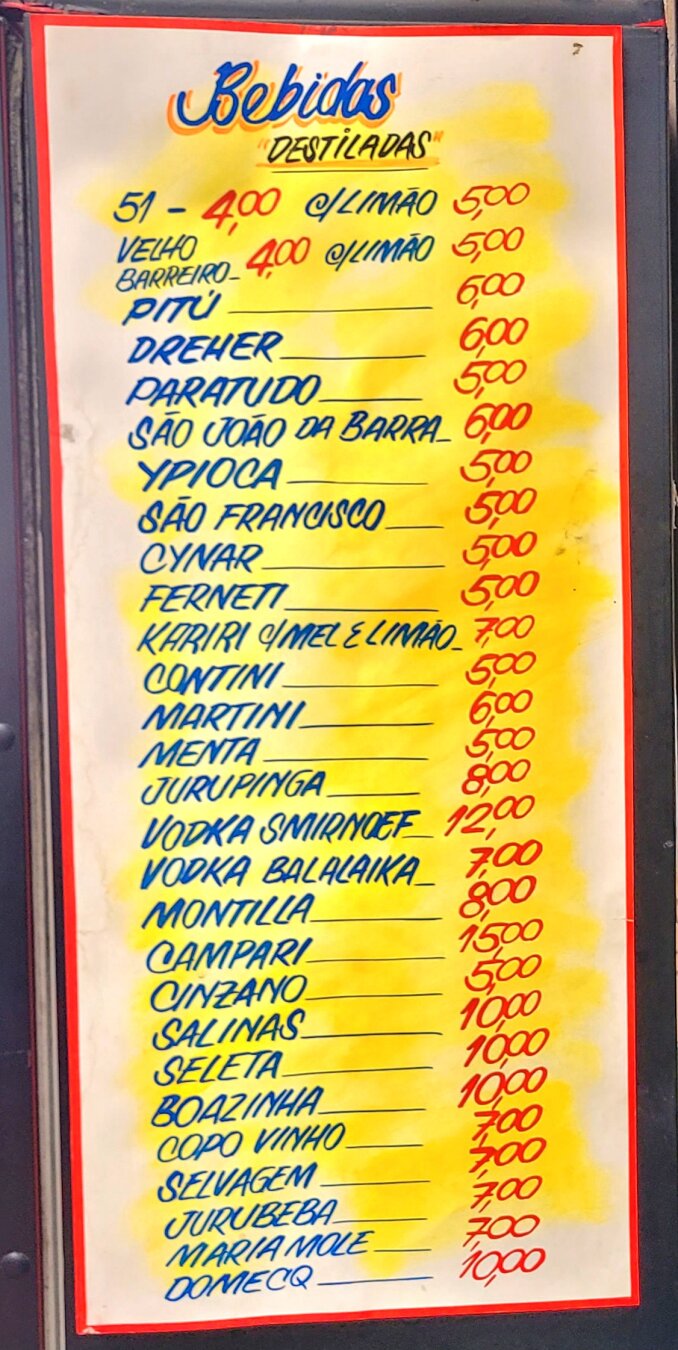 Bebidas
"DESTILADAS"
51 - 4,00 C/LIMÃO 5,00
VELHO
BARREIRO_ 4,00 C/LIMÃO 5,00
PITÚ 6,00
DREHER 6,00
PARATUDO 5,00
SÃO JOÃO DA BARRA 6,00
YPIOCA 5,00
SÃO FRANCISCO 5,00
CYNAR 5,00
FERNETI 5,00
KARIRI C/MEL E LIMÃO 7,00
CONTINI 5,00
MARTINI 6,00
MENTA 5,00
JURUPINGA 8,00
VODKA SMIRNOFF 12,00
VODKA BALALAIKA 7,00
MONTILLA 8,00
CAMPARI 15,00
CINZANO 5,00
SALINAS 10,00
SELETA 10,00
BOAZINHA 10,00
COPO VINHO 7,00
SELVAGEM 7,00
JURUBEBA 7,00
MARIA MOLE 7,00
DOMECQ 10,00